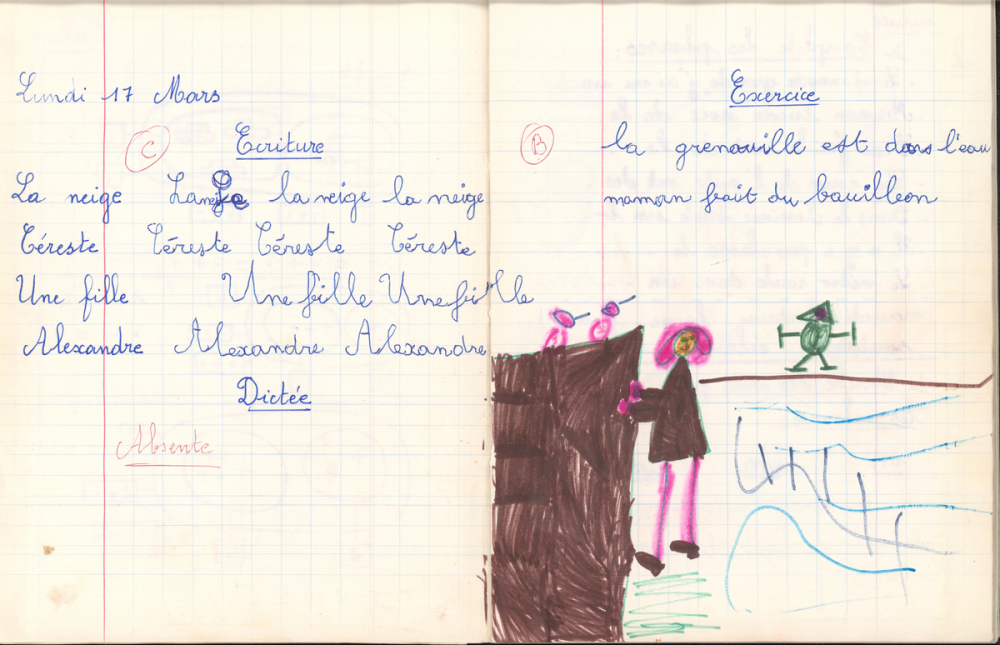 Lundi 17 Mars
C
Ecriture
La neige la neige la neige
Céreste Céreste Céreste Céreste
Une fille Une fille Une fille
Alexandre Alexandre Alexandre
Dictée
Absente
Exercice
B
la grenouille est dans l'eau
maman frait du bauilleon